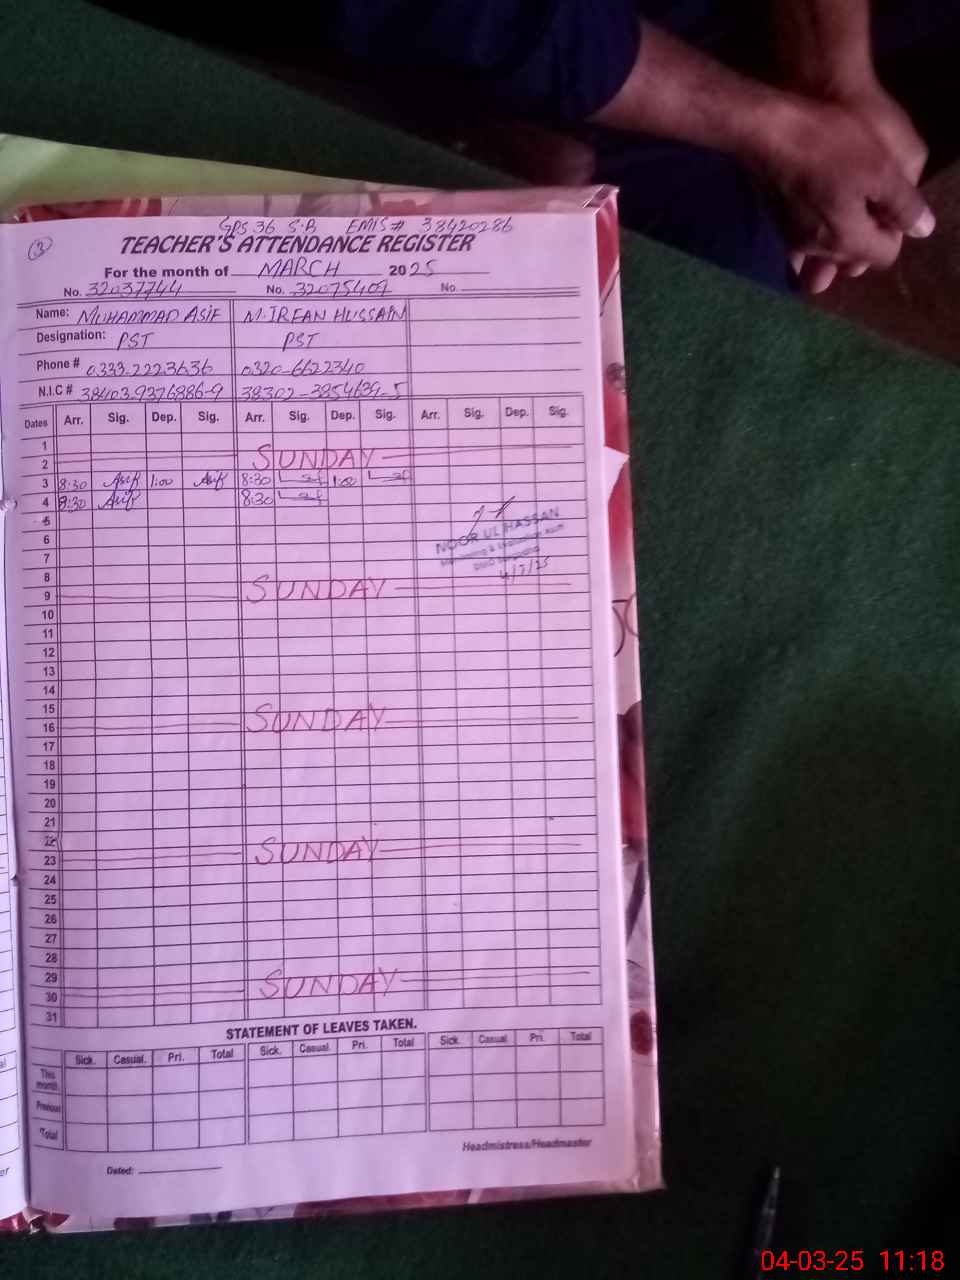 3
GPS 36 S.B EMIS# 38420286
TEACHER'S ATTENDANCE REGISTER
For the month of MARCH 2025
No. 32037744 No. 32075407 No.
Name: MUHAMMAD ASIF M. IRFAN HUSSAIN
Designation: PST PST
Phone # 0333-2223636 0320-6622340
N.I.C # 38403-9376886-9 38302-3854639-5
Dates Arr. Sig. Dep. Sig. Arr. Sig. Dep. Sig. Arr. Sig. Dep. Sig.
1
2 SUNDAY
3 8:30 Asif 1:00 Asif 8:30 1:00
4 8:30 Asif 8:30
5
6
7
8
9 SUNDAY
10
11
12
13
14
15
16 SUNDAY
17
18
19
20
21
22
23 SUNDAY
24
25
26
27
28
29
30 SUNDAY
31
NOOR UL HASSAN
Monitoring & Evaluation
4/3/25
STATEMENT OF LEAVES TAKEN.
Sick. Casual. Pri. Total Sick. Casual. Pri. Total Sick. Casual Pri. Total
This month
Previous
Total
Headmistress/Headmaster
Dated:
04-03-25 11:18